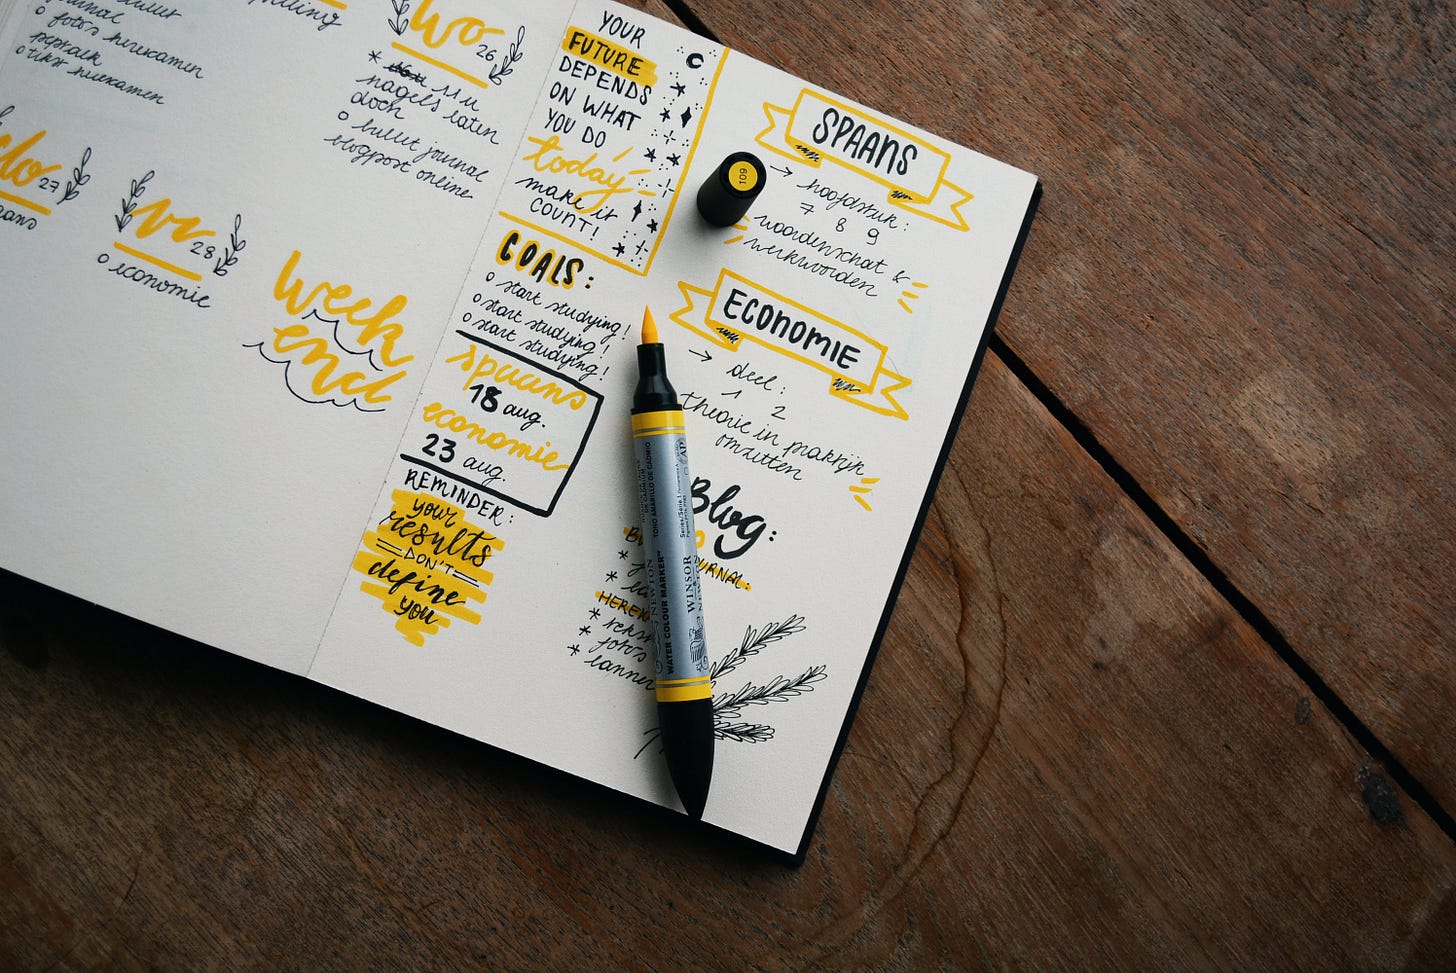 bullet
journal
o foto's herexamen
peptalk
o tekst herexamen
wo 26
* 11 u
nagels laten
doen
o bullet journal
blogpost online
do 27
vr 28
o economie
week
end
YOUR
FUTURE
DEPENDS
ON WHAT
YOU DO
today
make it
COUNT!
GOALS:
o start studying!
o start studying!
o start studying!
spaans
18 aug.
economie
23 aug.
REMINDER:
your
results
DON'T
define
you
SPAANS
→ hoofdstuk:
7 8 9
woordenschat &
werkwoorden
ECONOMIE
→ deel:
1 2
theorie in praktijk
omzetten
Blog:
URNAL:
HEREX
* tekst
* foto's
* banner
109
WINSOR
NEWTON
WATER COLOUR MARKER™
Series/Série 1
TONO AMARILLO DE CADMIO